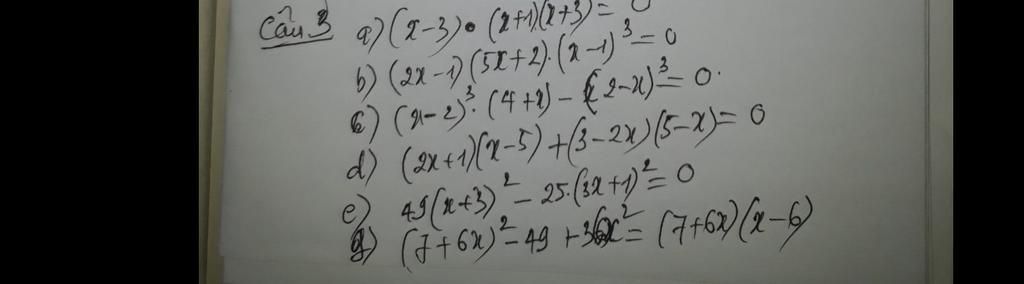 Câu 3 a) (x-3)•(x+1)(x+3)=0
b) (2x-1)(5x+2).(x-1)³=0
c) (x-2)³.(4+x)-(2-x)³=0.
d) (2x+1)(x-5)+(3-2x)(5-x)=0
e) 49(x+3)²-25.(3x+1)²=0
g) (7+6x)²-49+36x²=(7+6x)(x-6)